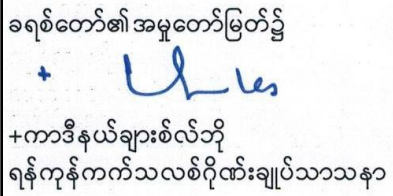 ခရစ်တော်၏ အမှုတော်မြတ်၌
+
+ကာဒီနယ်ချားစ်လ်ဘို
ရန်ကုန်ကက်သလစ်ဂိုဏ်းချုပ်သာသနာ